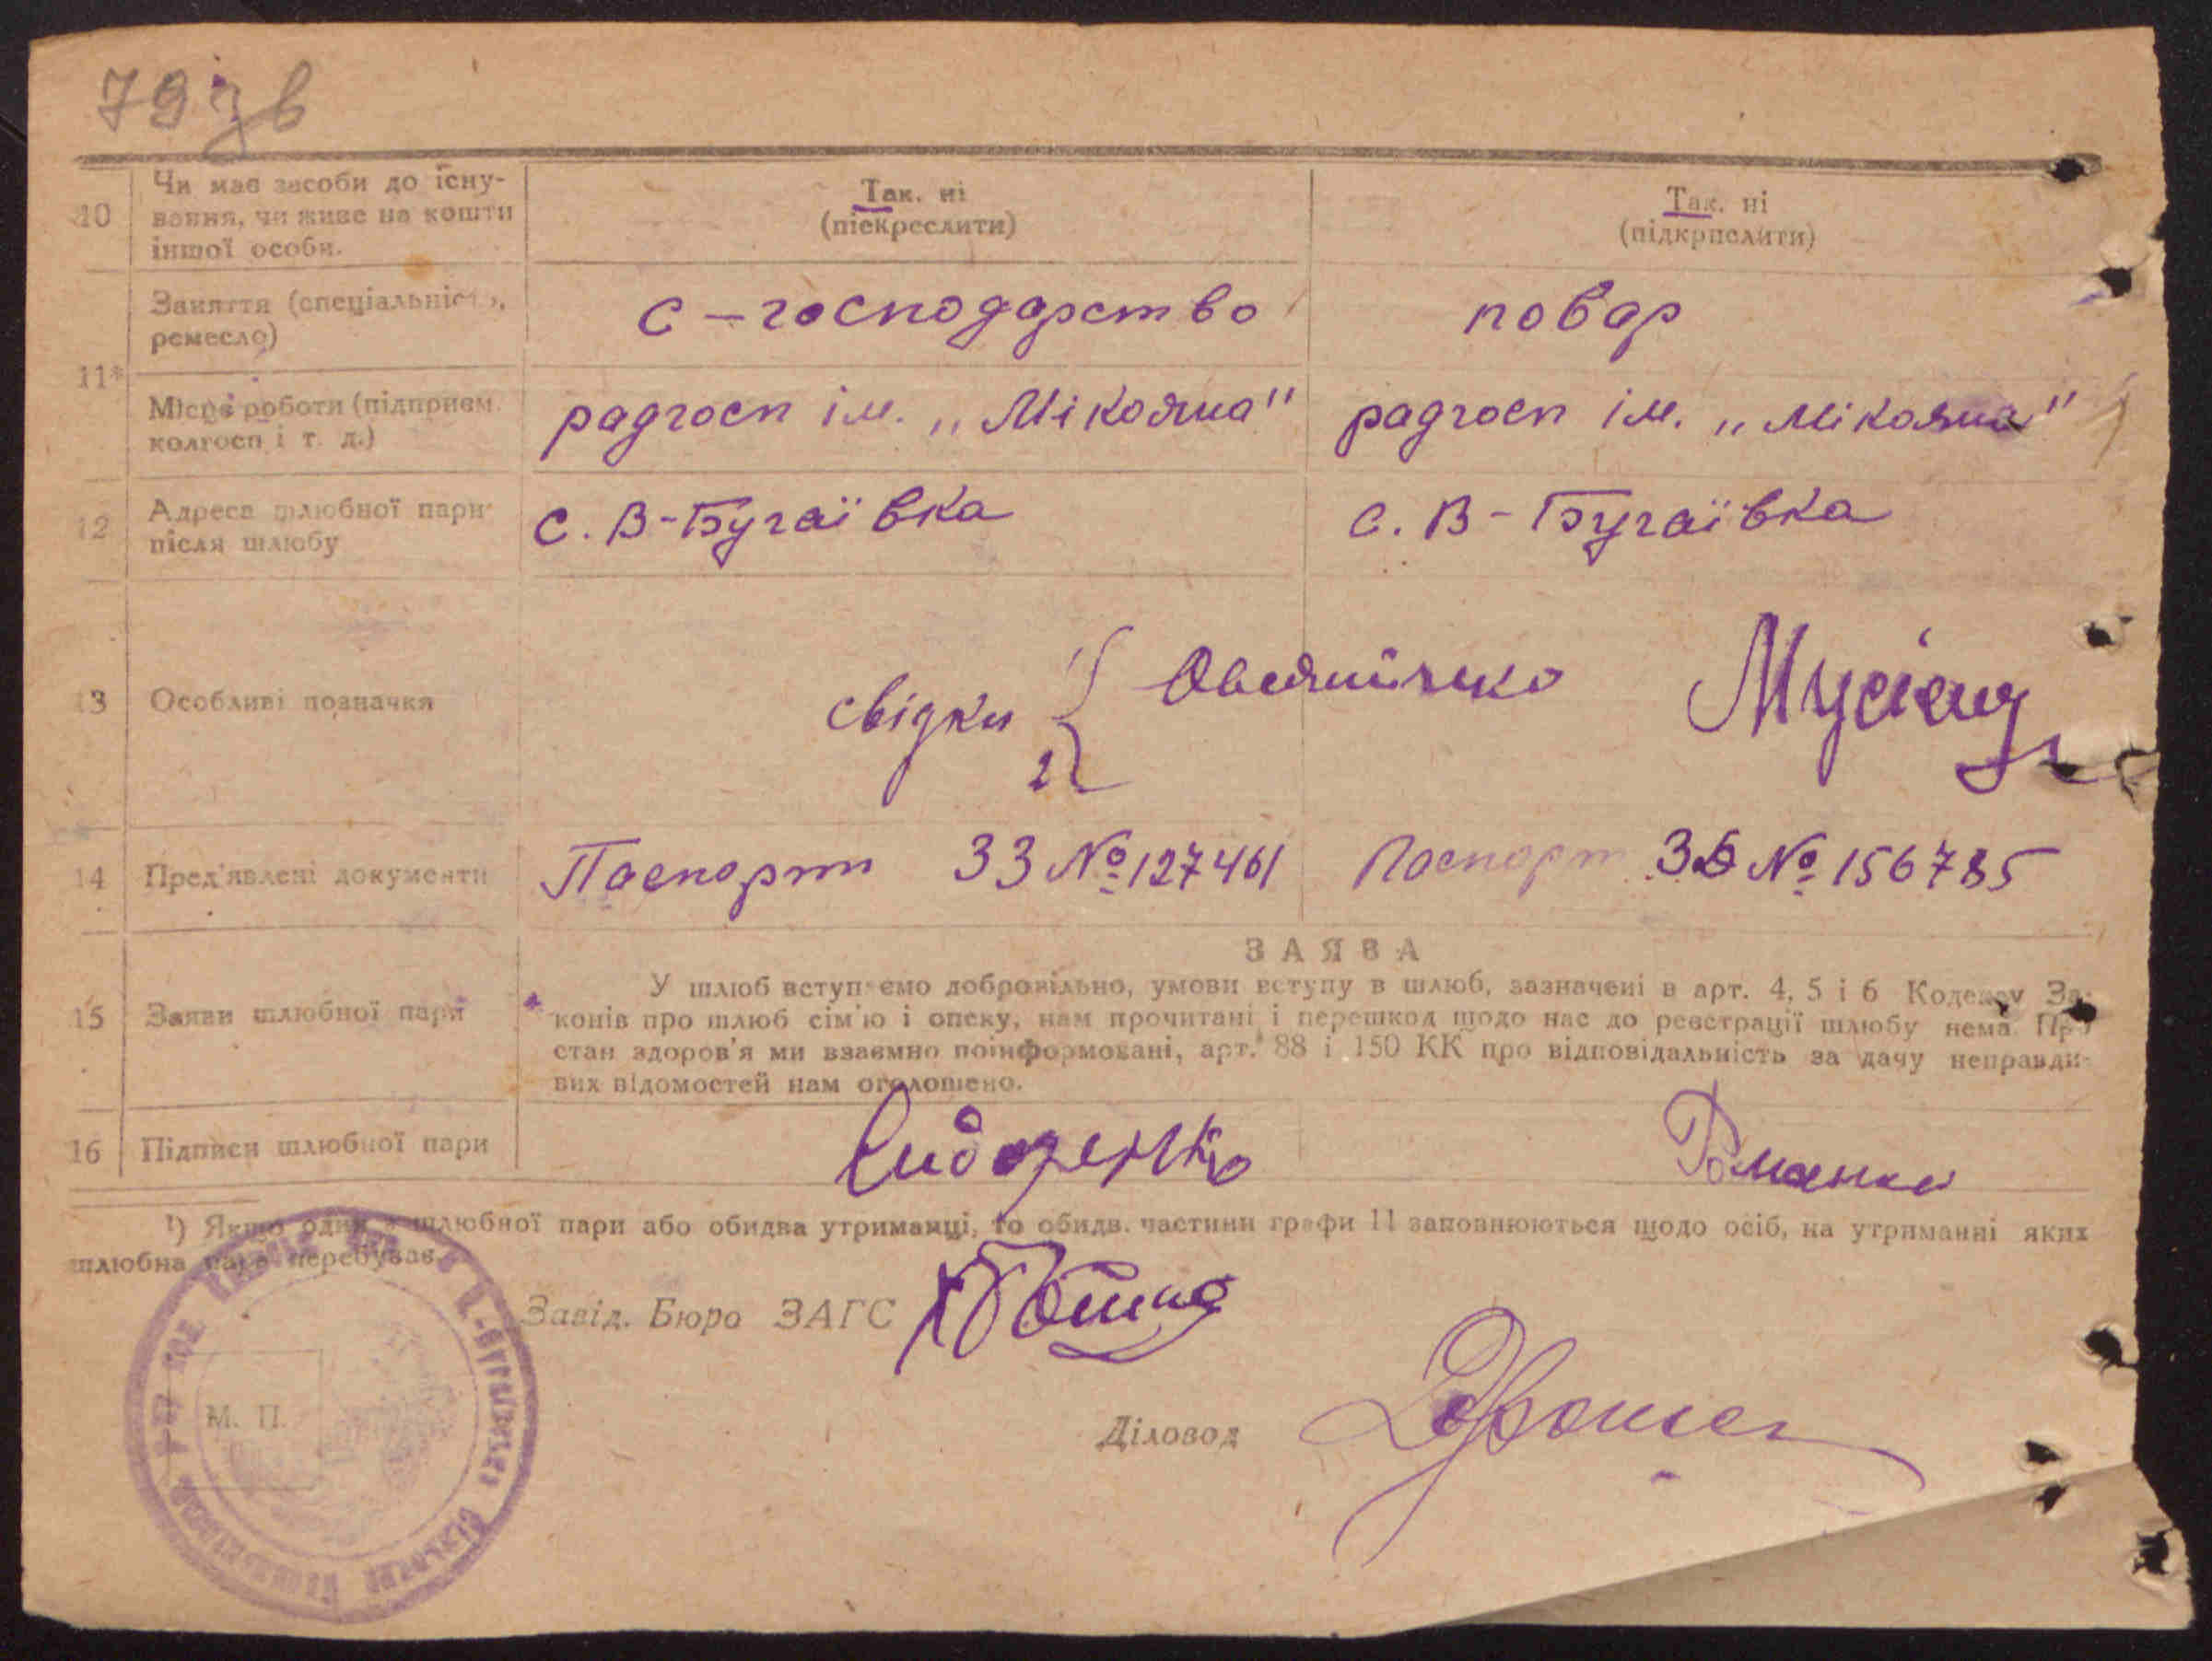 79 зв
10
Чи має засоби до існу-
вання, чи живе на кошти
іншої особи.
Так. ні
(піскреслити)
Так. ні
(підкрпслити)
11*
Заняття (спеціальніс
ремесло)
с-господарство
повар
Місце роботи (підприєм.
колгосп і т. д.)
радгосп ім. „Мікояна"
радгосп ім. „Мікояна"
12
Адреса шлюбної пари
після шлюбу
с. В-Бугаївка
с. В-Бугаївка
13
Особливі позначки
свідки
1
2
14
Пред'явлені документи
Паспорт 33 № 127461
Паспорт № 156785
ЗАЯВА
15
Заяви шлюбної пари
У шлюб вступаємо добровільно, умови вступу в шлюб, зазначені в арт. 4, 5 і 6 Кодексу За-
конів про шлюб сім'ю і опеку, нам прочитані і перешкод щодо нас до реєстрації шлюбу нема. Пр
стан здоров'я ми взаємно поінформовані, арт. 88 і 150 КК про відповідальність за дачу неправди-
вих відомостей нам оголошено.
16
Підписи шлюбної пари
Сидоренко
Романко
¹) Якщо один з шлюбної пари або обидва утриманці, то обидв. частини графи 11 заповнюються щодо осіб, на утриманні яких
шлюбна пара перебуває.
Завід. Бюро ЗАГС
М. П.
Діловод